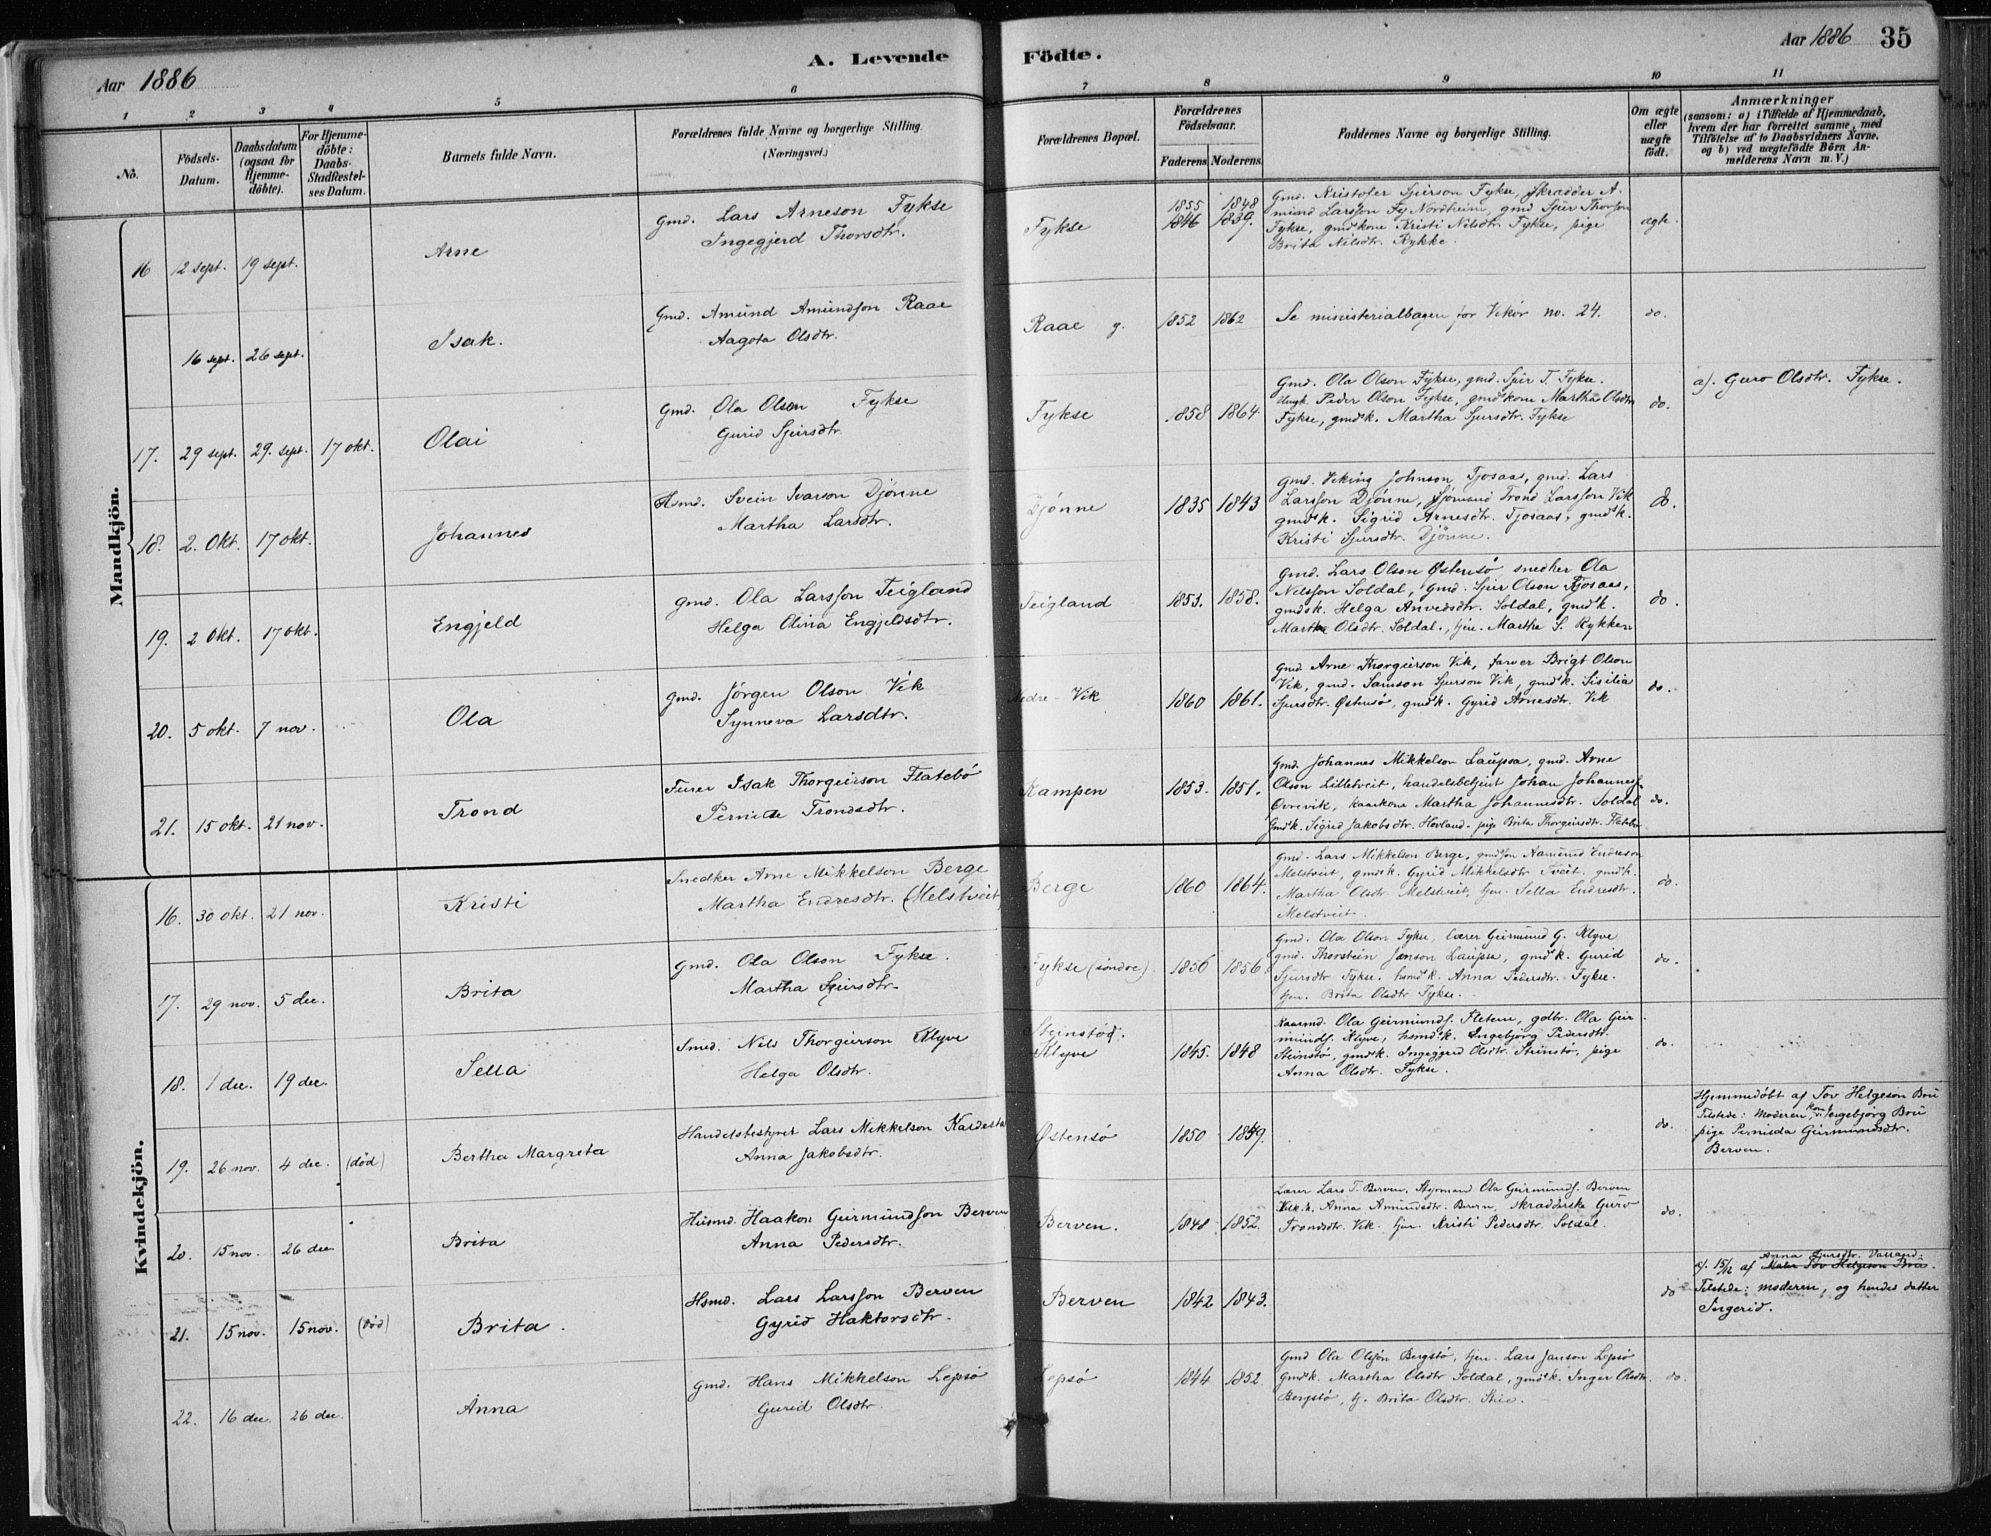 Aar 1886
A. Levende Födte.
Aar 1886 35
1 2 3 4 5 6 7 8 9 10 11
No.
Födsels-Datum.
Daabsdatum (ogsaa for Hjemmedöbte).
For Hjemmedöbte: Daabs-Stadfæstelses Datum.
Barnets fulde Navn.
Forældrenes fulde Navne og borgerlige Stilling. (Næringsvei.)
Forældrenes Bopæl.
Forældrenes Födselsaar.
Faderens Moderens
Faddernes Navne og borgerlige Stilling.
Om ægte eller uægte født.
Anmærkninger
(saasom: a) i Tilfælde af Hjemmedaab, hvem der har forrettet samme, med Tilföielse af to Daabsvidners Navne, og b) ved uægtefödte Börn Anmelderens Navn m. V.)
Mandkjön.
16 12 sept. 19 sept. Arne
Gmd. Lars Arneson Fykse
Ingegjerd Thorsdtr.
Fykse
1855 1848
1846 1839.
Gmd. Kristofer Sjurson Fykse, Skrædder A-
mund Larsson Nordheim, gmd Sjur Thorson
Fykse, gmdkone Kristi Nilsdtr. Fykse, pige
Brita Nilsdtr. Rykke.
ægte.
16 sept. 26 sept. Isak.
Gmd. Amund Amundson Raae
Aagota Olsdtr.
Raae g. 1852 1862
Se ministerialbogen for Vikör no. 24.
do.
17. 29 sept. 29. sept. 17 okt. Olai
Gmd. Ola Olson Fykse
Gurid Sjursdtr.
Fykse 1858 1864.
Gmd. Ola Olson Fykse, gmd. Sjur T. Fykse.
Ungk. Peder Olson Fykse, gmdkone Martha Olsdtr
Fykse, gmdk. Martha Sjursdtr. Fykse
do.
a). Guro Olsdtr. Fykse.
18. 2. Okt. 17 okt. Johannes
Hsmd. Svein Ivarson Djönne
Martha Larsdtr.
Djönne 1835 1843
Gmd. Viking Johnson Tjosaas, gmd. Lars
Larsson Djönne, Sjömand Trond Larsson Vik
gmdsk. Sigrid Arnesdtr. Tjosaas, gmdsk.
Kristi Sjursdtr. Djönne.
do.
19. 2 Okt. 17 okt. Engjeld
Gmd. Ola Larsson Teigland
Helga Olina Engjeldsdtr.
Teigland 1853. 1858.
Gmd. Lars Olson Østensö snedker Ola
Nilsson Soldal, gmd. Sjur Olson Tjosaas,
gmdsk. Helga Anvedsdtr. Soldal, gmdsk.
Martha Olsdtr. Soldal., tjen. Martha S. Rykken
do.
20. 5 okt. 7 nov. Ola
Gmd. Jörgen Olson Vik
Synneva Larsdtr.
Nedre-Vik 1860 1861.
Gmd. Arne Thorgeirson Vik, farver Brigt Olson
Vik, gmd. Samson Sjurson Vik, gmdsk. Sisilia
Sjursdtr. Østensö, gmdsk. Gyrid Arnesdtr. Vik
do.
21. 15 okt. 21 nov. Trond
Furer Isak Thorgeirson Flatebö
Pernille Trondsdtr.
Kampen 1853. 1851.
Gmd. Johannes Mikkelson Laupsa, gmd. Arne
Olson Lilletveit, handelsbetjent Johan Johannesf.
Övrevik, kaarkone Martha Johannesdtr. Soldal
Gmdk. Sigrid Jakobsdtr. Hovland. pige Brita Thorgeirsdtr. Flatebö
do.
Kvindekjön.
16. 30 okt. 21 nov. Kristi
Snedker Arne Mikkelson Berge
Martha Endresdtr. (Melstveit)
Berge 1860 1864.
Gmd. Lars Mikkelson Berge, gmdson Aamund Endreson
Melstveit, gmdsk. Gyrid Mikkelsdtr Tveit, gmdk.
Martha Olsdtr. Melstveit, tjen. Sella Endresdtr.
Melstveit.
do.
17. 29 nov. 5 dec. Brita
Gmd. Ola Olson Fykse.
Martha Sjursdtr.
Fykse (söndre) 1856 1856.
Gmd. Ola Olson Fykse, lærer Geirmund G. Klyve
gmd. Thorstein Janson Laupsa, gmdsk. Gurid
Sjursdtr Fykse. hsmdk. Anna Pedersdtr. Fykse.
tjen. Brita Olsdtr Fykse.
do.
18. 1 dec. 19 dec. Sella
Smed. Nils Thorgeirson Klyve
Helga Olsdtr.
Steinstö
Klyve 1845. 1848
Kaarmd. Ola Geirmundf. Fletene, gdbr. Ola Geir-
mundf. Klyve, hsmdsk. Ingebjörg Pedersdtr.
Steinstö, gmdsk. Ingeggerd Olsdtr. Steinstö, pige
Anna Olsdtr. Fykse.
do.
19. 26 nov. 4 dec. (död) Bertha Margreta
Handelsbestyrer Lars Mikkelson Kaldestad
Anna Jakobsdtr.
Østensö 1850 1849.
do.
Hjemmedöbt af Tov Helgeson Brú
Tilstede: Moderen, Kone Ingebjörg Brú
pige Pernilla Geirmundsdtr.
Berven.
20. 15 nov. 26 dec. Brita
Husmd. Haakon Geirmundson Berven
Anna Pedersdtr.
Berven. 1848 1852.
Lærer Lars T. Berven, Styrmand Ola Geirmundf. Berven
Anna Amundsdtr. Berven, skrædderske Guro
Trondsdtr. Vik. tjen. Kristi Pedersdtr. Soldal.
do.
21. 15 nov. 15 nov. (död) Brita.
Hsmd. Lars Larsson Berven
Gyrid Haktorsdtr.
Berven 1842 1843.
do
Anna Sjursdtr. Varaand-
a). 15/12 af Maler Tov Helgeson Brú.
Tilstede: moderen, og hendes datter
Ingerid.
22. 16 dec. 26 dec. Anna
Gmd. Hans Mikkelson Lepsö
Gurid Olsdtr
Lepsö 1844 1852.
Gmd Ola Olsön Bergstö, tjen. Lars Janson Lepsö
Gmdk. Martha Olsdtr Soldal, gmdsk. Inger Olsdtr.
Bergstö, tj. Brita Olsdtr.
do.